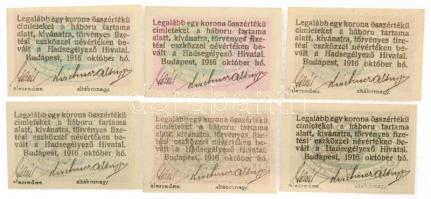 Legalább egy korona összértékű
címleteket a háboru tartama
alatt, kivánatra, törvényes fize-
tési eszközzel névértéken be-
vált a Hadsegélyező Hivatal.
Budapest, 1916 október hó.
Legalább egy korona összértékű
címleteket a háboru tartama
alatt, kivánatra, törvényes fize-
tési eszközzel névértéken be-
vált a Hadsegélyező Hivatal.
Budapest, 1916 október hó.
Legalább egy korona összértékű
címleteket a háboru tartama
alatt, kivánatra, törvényes fize-
tési eszközzel névértéken be-
vált a Hadsegélyező Hivatal.
Budapest, 1916 október hó.
Legalább egy korona összértékű
címleteket a háboru tartama
alatt, kivánatra, törvényes fize-
tési eszközzel névértéken be-
vált a Hadsegélyező Hivatal.
Budapest, 1916 október hó.
alezredes. altábornagy.
Legalább egy korona összértékű
címleteket a háboru tartama
alatt, kivánatra, törvényes fize-
tési eszközzel névértéken be-
vált a Hadsegélyező Hivatal.
Budapest, 1916 október hó.
alezredes. altábornagy.
Legalább egy korona összértékű
címleteket a háboru tartama
alatt, kivánatra, törvényes fize-
tési eszközzel névértéken be-
vált a Hadsegélyező Hivatal.
Budapest, 1916 október hó.
alezredes. altábornagy.